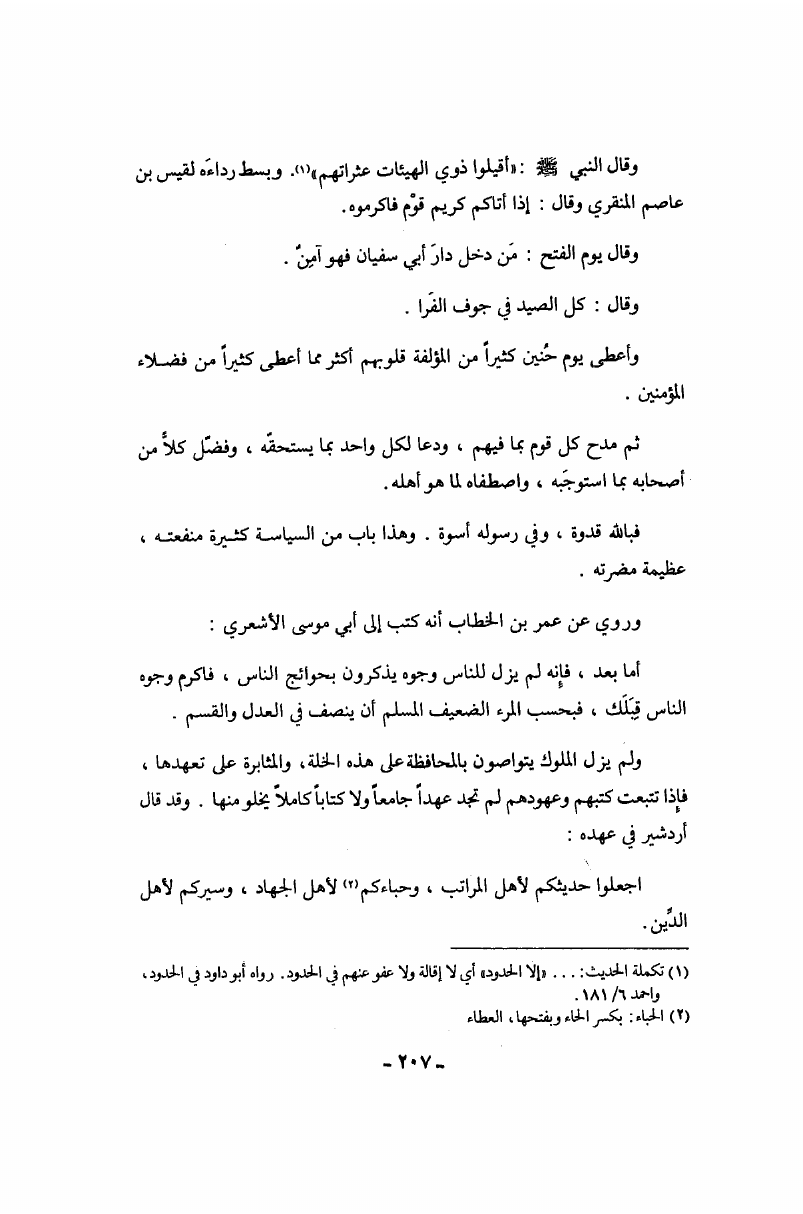 وقال النبي ﷺ : «أقيلوا ذوي الهيئات عثراتهم»(١). وبسط رداءَه لقيس بن
عاصم المنقري وقال : إذا أتاكم كريم قوْم فاكرموه.
وقال يوم الفتح : مَن دخل دارَ أبي سفيان فهو آمِنٌ .
وقال : كل الصيد في جوف الفَرا .
وأعطى يوم حُنين كثيراً من المؤلفة قلوبهم أكثر مما أعطى كثيراً من فضلاء
المؤمنين .
ثم مدح كل قوم بما فيهم ، ودعا لكل واحد بما يستحقّه ، وفضّل كلاًّ من
أصحابه بما استوجَبه ، واصطفاه لما هو أهله.
فبالله قدوة ، وفي رسوله أسوة . وهذا باب من السياسة كثيرة منفعته ،
عظيمة مضرته .
وروي عن عمر بن الخطاب أنه كتب إلى أبي موسى الأشعري :
أما بعد ، فإنه لم يزل للناس وجوه يذكرون بحوائج الناس ، فاكرم وجوه
الناس قِبَلَك ، فبحسب المرء الضعيف المسلم أن ينصف في العدل والقسم .
ولم يزل الملوك يتواصون بالمحافظة على هذه الخلة، والمثابرة على تعهدها ،
فإذا تتبعت كتبهم وعهودهم لم تجد عهداً جامعاً ولا كتاباً كاملاً يخلو منها . وقد قال
أردشير في عهده :
اجعلوا حديثكم لأهل المراتب ، وحباءكم(٢) لأهل الجهاد ، وسيركم لأهل
الدِّين.
(١) تكملة الحديث: . . . «إلا الحدود» أي لا إقالة ولا عفو عنهم في الحدود. رواه أبو داود في الحدود،
واحمد ٦/ ١٨١.
(٢) الحباء: بكسر الحاء وبفتحها، العطاء
- ٢٠٧ -